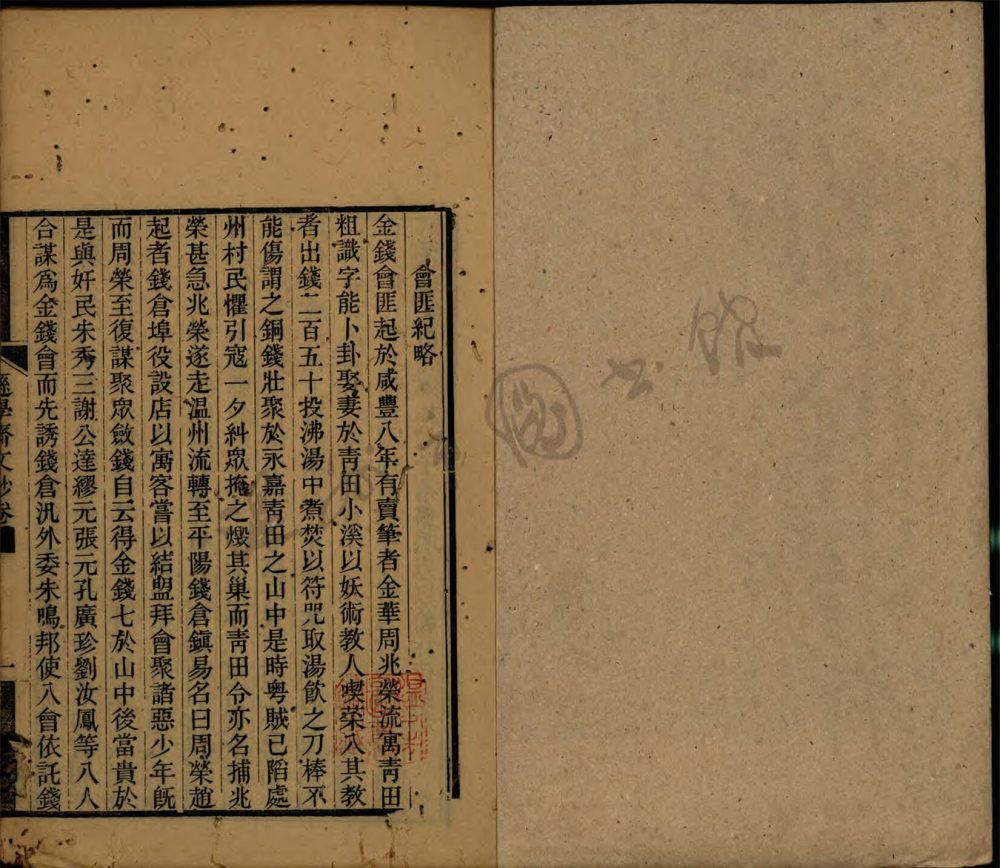 會匪紀略
金錢會匪起於咸豐八年有賣筆者金華周兆榮流寓青田
粗識字能卜卦娶妻於青田小溪以妖術教人喫菜入其教
者出錢二百五十投沸湯中煮焚以符咒取湯飲之刀棒不
能傷謂之銅錢壯聚於永嘉青田之山中是時粵賊已陷處
州村民懼引寇一夕糾眾掩之燬其巢而青田令亦名捕兆
榮甚急兆榮遂走溫州流轉至平陽錢倉鎮易名曰周榮趙
起者錢倉埠役設店以寓客嘗以結盟拜會聚諸惡少年旣
而周榮至復謀聚眾斂錢自云得金錢七於山中後當貴於
是與奸民朱秀三謝公達繆元張元孔廣珍劉汝鳳等八人
合謀爲金錢會而先誘錢倉汛外委朱鳴邦使入會依託錢
遜學齋文鈔卷
一
圖書館